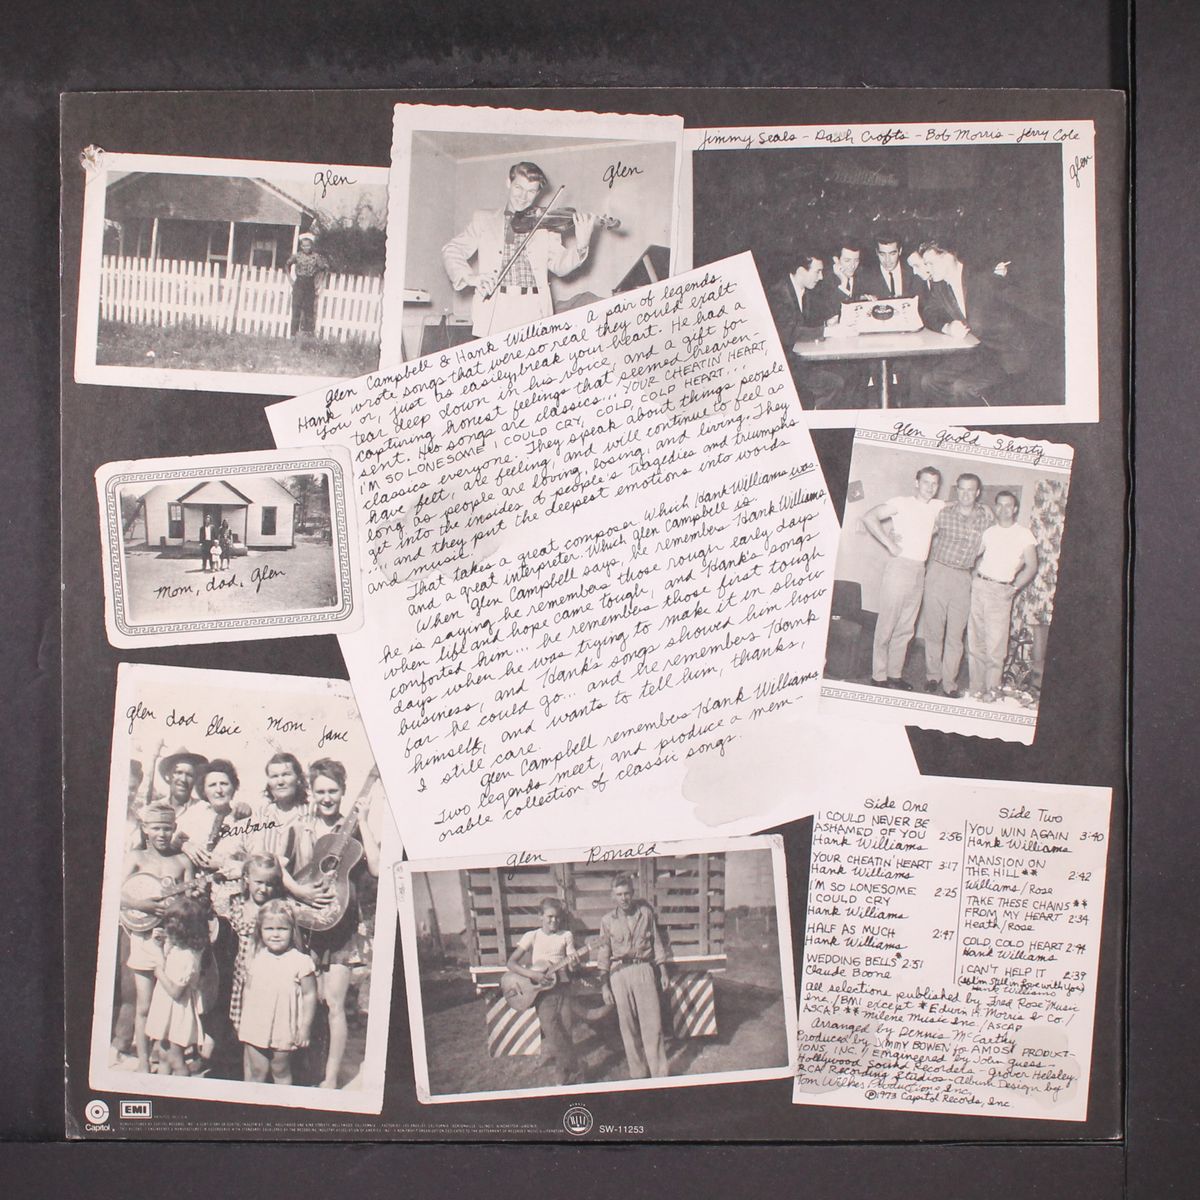 Glen
Glen
Jimmy Seals - Dash Crofts - Bob Morris - Jerry Cole
Glen
Glen Campbell & Hank Williams, a pair of legends.
Hank wrote songs that were so real they could exalt
you or, just as easily, break your heart. He had a
tear deep down in his voice, and a gift for
capturing honest feelings that seemed heaven-
sent. His songs are classics... YOUR CHEATIN HEART,
I'M SO LONESOME I COULD CRY, COLD, COLD HEART...
classics everyone. They speak about things people
have felt, are feeling, and will continue to feel as
long as people are loving, losing, and living. They
get into the insides of people's tragedies and triumphs
... and they put the deepest emotions into words
and music.
That takes a great composer which Hank Williams was.
and a great interpreter. Which Glen Campbell is.
When Glen Campbell says, he remembers Hank Williams,
he is saying he remembers those rough early days
when life and hope came tough, and Hank's songs
comforted him... he remembers those first tough
days when he was trying to make it in show
business, and Hank's songs showed him how
far he could go... and he remembers Hank
himself, and wants to tell him, thanks,
I still care.
Glen Campbell remembers Hank Williams
Two legends meet, and produce a mem-
orable collection of classic songs.
Glen Gerold Shorty
Mom, dad, Glen
Glen dad Elsie Mom Jane
Barbara
Glen Ronald
Side One
I COULD NEVER BE
ASHAMED OF YOU 2:56
Hank Williams
YOUR CHEATIN' HEART 3:17
Hank Williams
I'M SO LONESOME 2:25
I COULD CRY
Hank Williams
HALF AS MUCH 2:47
Hank Williams
WEDDING BELLS* 2:51
Claude Boone
Side Two
YOU WIN AGAIN 3:40
Hank Williams
MANSION ON
THE HILL ** 2:42
Williams/Rose
TAKE THESE CHAINS **
FROM MY HEART 2:34
Heath/Rose
COLD, COLD HEART 2:44
Hank Williams
I CAN'T HELP IT 2:39
(If I'm still in love with you)
Hank Williams
All selections published by Fred Rose Music
Inc./BMI except *Edwin H. Morris & Co./
ASCAP ** Milene Music Inc./ASCAP
Arranged by Dennis McCarthy
Produced by JIMMY BOWEN for AMOS PRODUCT-
IONS, INC. // Engineered by John Guess -
Hollywood Sound Recorders - Grover Helsley.
RCA Recording Studios - Album Design by
Tom Wilkes Productions Inc.
℗1973 Capitol Records, Inc.
Capitol.
EMI
SW-11253